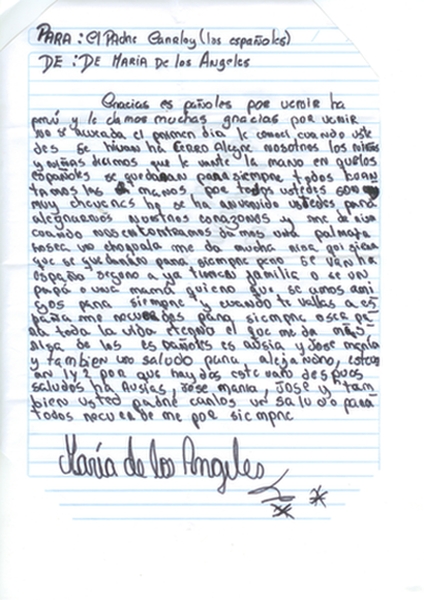 PARA: El Padre Carlos y (los españoles)
DE: DE MARIA De los Angeles
Gracias es pañoles por venir ha
perú y le damos muchas gracias por venir
no se nunca el primer dia le conocí cuando uste
des se hivan ha CERRO Alegre nosotros los niños
y niñas diamos que le vante la mano en que los
españoles se quedaran para siempre todos levan
tamos las manos por todos ustedes son
muy cheveres ha se ha an venido ustedes para
alegrarnos nuestros corazones y me da risa
cuando nos encontramos damos una palmata
hosea un choquala me da mucha risa qui siera
que se quedaran para siempre pero se van ha
españo seguro a ya tienen familia o se un
papá o una mamá quiero que se amos ami
gos para siempre y cuando te vallas a es
paña me recuerdes para siempre osea pa
ra toda la vida eterna el que me da mas
risa de los es pañoles es Ausia y Jose maria
y tambien un saludo para alejandro,
por que hay dos este van despues
saludos ha Ausias, Jose Maria, Jose y tam
bien usted padre carlos un saludo para
todos recuer de me por siempre
María de los Angeles